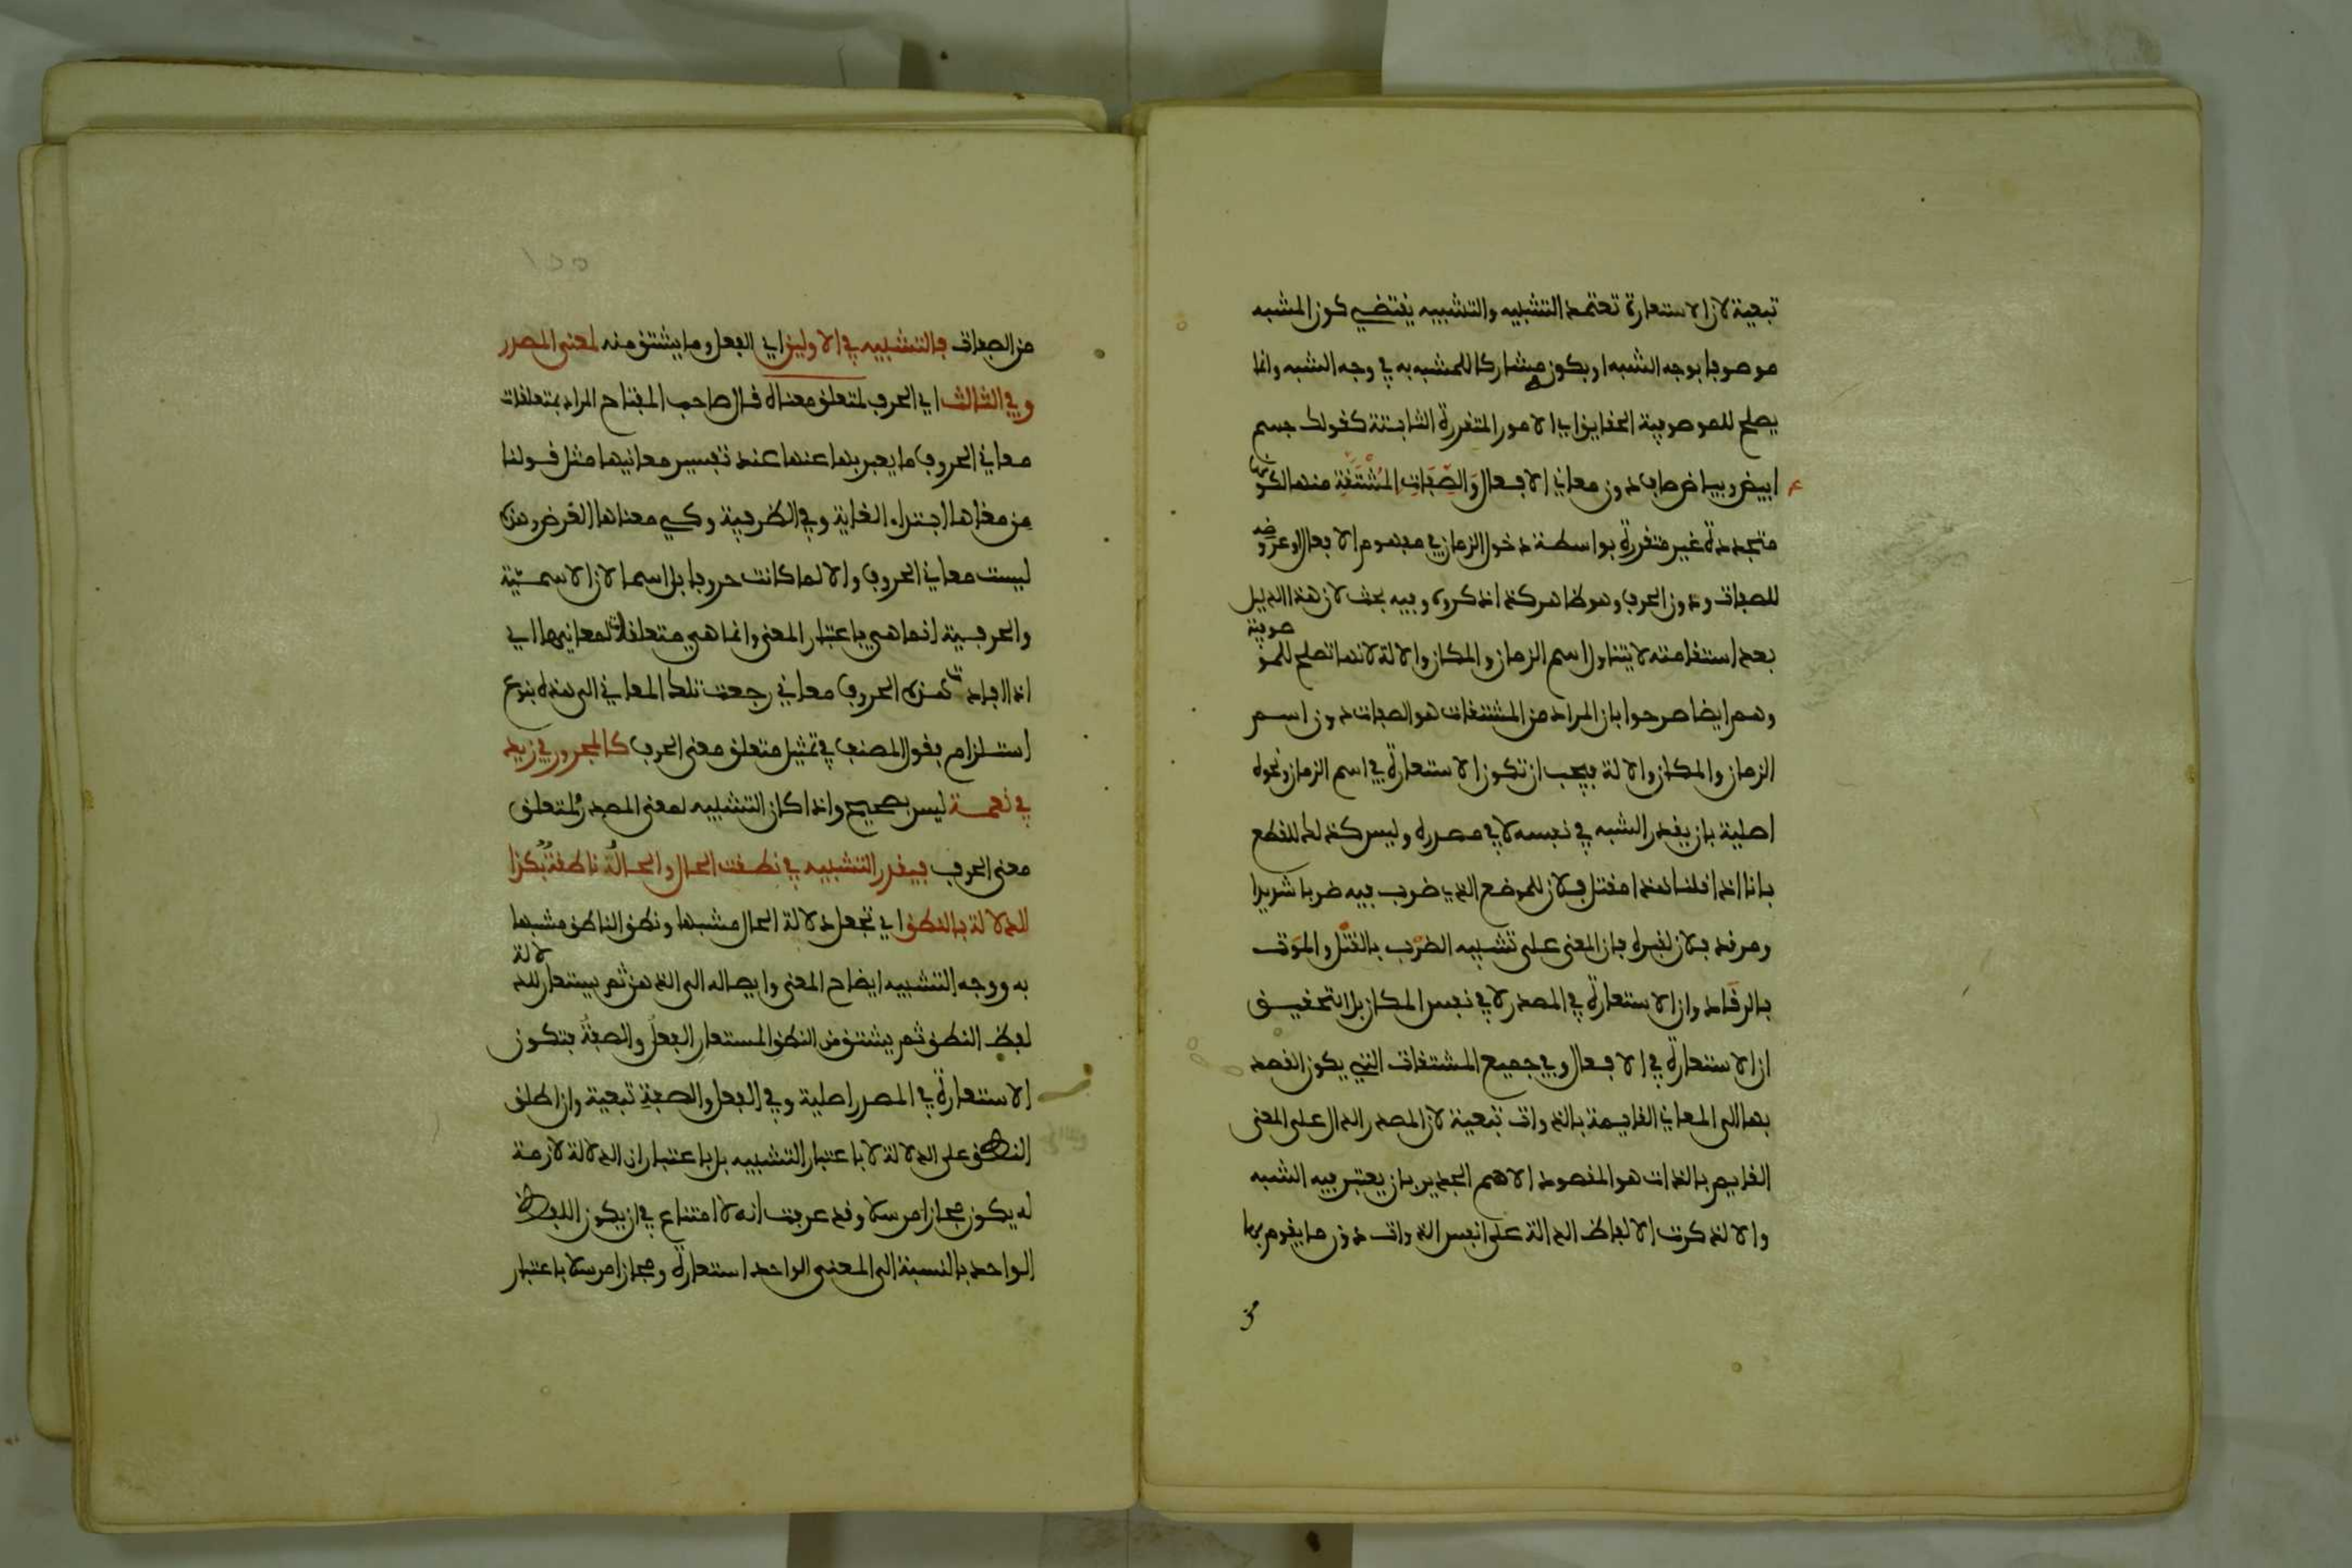 تبعية لان الاستعارة تعتمد التشبيه والتشبيه يقتضي كون المشبه
موصوفا بوجه الشبه او بكون مشاركا للمشبه به في وجه الشبه وانما
يصلح للموصوفية الحقايق اي الامور المتقررة الثابتة كقولك جسم
ابيض وبياض صاف دون معاني الافعال وَالصِّفَاتِ المُشْتَقَّةِ منها لكونها
متجددة غير متقررة بواسطة دخول الزمان في مفهوم الافعال او عروضه
للصفات ودون الحرف وهو ظاهر كذا ذكروه وفيه بحث لان هذا الدليل
بعد استقامته لا يتناول اسم الزمان والمكان والالة لانها تصلح للموصوفية
وهم ايضا صرحوا بان المراد من المشتقات هو الصفات دون اسم
الزمان والمكان والالة فيجب ان تكون الاستعارة في اسم الزمان ونحوه
اصلية بان يقدر الشبه في نفسه لا في مصدره وليس كذلك للقطع
بانا اذا قلنا هذا مقتل فلان للموضع الذي ضرب فيه ضربا شديدا
ومرقد فلان لقبره فان المعنى على تشبيه الضرب بالقتل والموت
بالرقاد وان الاستعارة في المصدر لا في نفس المكان بل التحقيق
ان الاستعارة في الافعال وفي جميع المشتقات التي يكون القصد
بها الى المعاني القايمة بالذوات تبعية لان المصدر الدال على المعنى
القايم بالذات هو المقصود الاهم الجدير بان يعتبر فيه الشبه
والا لذكرت الالفاظ الدالة على نفس الذوات دون ما يقوم بها
من
١٥٥
من الصفات فالتشبيه في الاولين اي الفعل وما يشتق منه لمعنى المصدر
وفي الثالث اي الحرف لمتعلق معناه قال صاحب المفتاح المراد بمتعلقات
معاني الحروف ما يعبر بها عنها عند تفسير معانيها مثل قولنا
من معناها ابتداء الغاية وفي الظرفية وكي معناها الغرض وهذه
ليست معاني الحروف والا لما كانت حروفا بل اسما لان الاسمية
والحرفية انما هي باعتبار المعنى وانما هي متعلقات لمعانيها اي
اذا افادت هذه الحروف معاني رجعت تلك المعاني الى هذه بنوع
استلزام فقول المصنف في تمثيل متعلق معنى الحرف كالمجرور في زيد
في نعمة ليس بصحيح واذا كان التشبيه لمعنى المصدر ولمتعلق
معنى الحرف فيقدر التشبيه في نطقت الحال والحالُ ناطقةٌ بكذا
للدلالة بالنطق اي تجعل دلالة الحال مشبها ونطق الناطق مشبها
به ووجه التشبيه ايضاح المعنى وايصاله الى الذهن ثم يستعار للدلالة
لفظ النطق ثم يشتق من النطق المستعار الفعلُ والصفةُ فتكون
الاستعارة في المصدر اصلية وفي الفعل والصفة تبعية وان اطلق
النطق على الدلالة لا باعتبار التشبيه بل باعتبار ان الدلالة لازمة
له يكون مجازا مرسلا وقد عرفت انه لا امتناع في ان يكون اللفظ
الواحد بالنسبة الى المعنى الواحد استعارة ومجازا مرسلا باعتبار